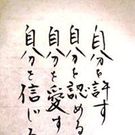 自分を許す
自分を認める
自分を愛す
自分を信じる